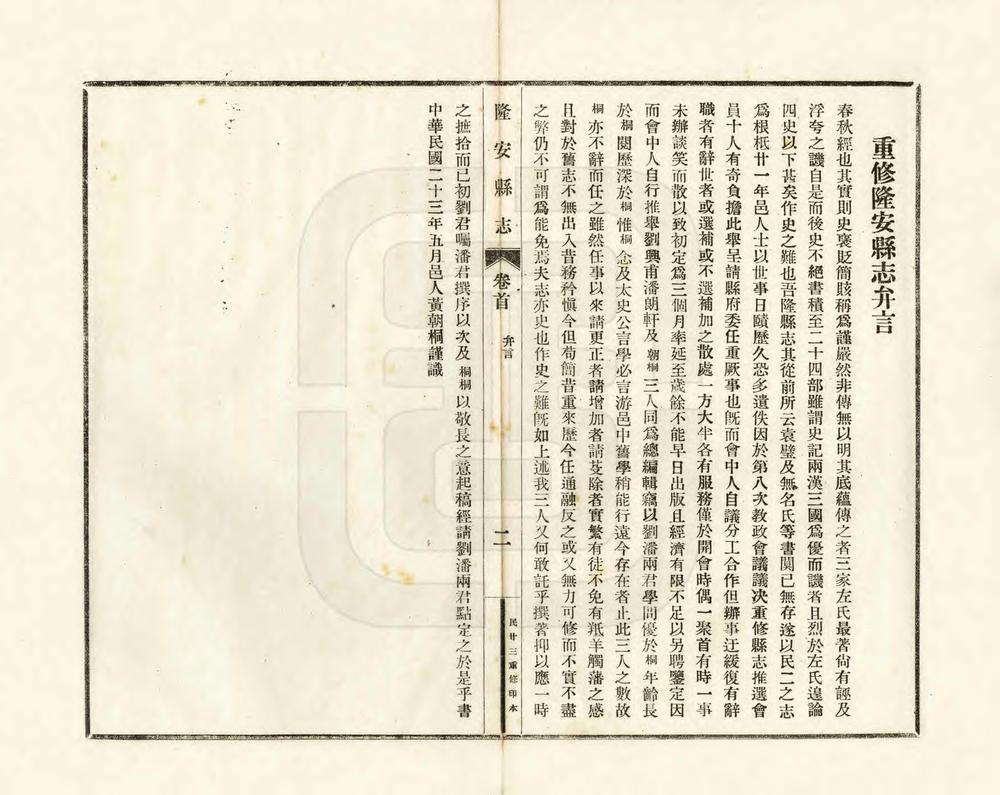 重修隆安縣志弁言
春秋經也其實則史褒貶簡賅稱爲謹嚴然非傳無以明其底蘊傳之者三家左氏最著尙有誣及
浮夸之譏自是而後史不絕書積至二十四部雖謂史記兩漢三國爲優而譏者且烈於左氏遑論
四史以下甚矣作史之難也吾隆縣志其從前所云袁璧及無名氏等書闃已無存遂以民二之志
爲根柢廿一年邑人士以世事日賾歷久恐多遺佚因於第八次敎政會議議决重修縣志推選會
員十人有奇負擔此舉呈請縣府委任重厥事也旣而會中人自議分工合作但辦事迂緩復有辭
職者有辭世者或選補或不選補加之散處一方大半各有服務僅於開會時偶一聚首有時一事
未辦談笑而散以致初定爲三個月率延至歲餘不能早日出版且經濟有限不足以另聘鑒定因
而會中人自行推舉劉興甫潘朗軒及朝桐三人同爲總編輯竊以劉潘兩君學問優於桐年齡長
於桐閱歷深於桐惟桐念及太史公言學必言游邑中舊學稍能行遠今存在者止此三人之數故
桐亦不辭而任之雖然任事以來請更正者請增加者請芟除者實繁有徒不免有羝羊觸藩之感
且對於舊志不無出入昔務矜愼今但苟簡昔重來歷今任通融反之或又無力可修而不實不盡
之弊仍不可謂爲能免焉夫志亦史也作史之難旣如上述我三人又何敢託乎撰著抑以應一時
隆安縣志
卷首
弁言
二
民廿三重修印本
之摭拾而已初劉君囑潘君撰序以次及桐桐以敬長之意起稿經請劉潘兩君點定之於是乎書
中華民國二十三年五月邑人黃朝桐謹識